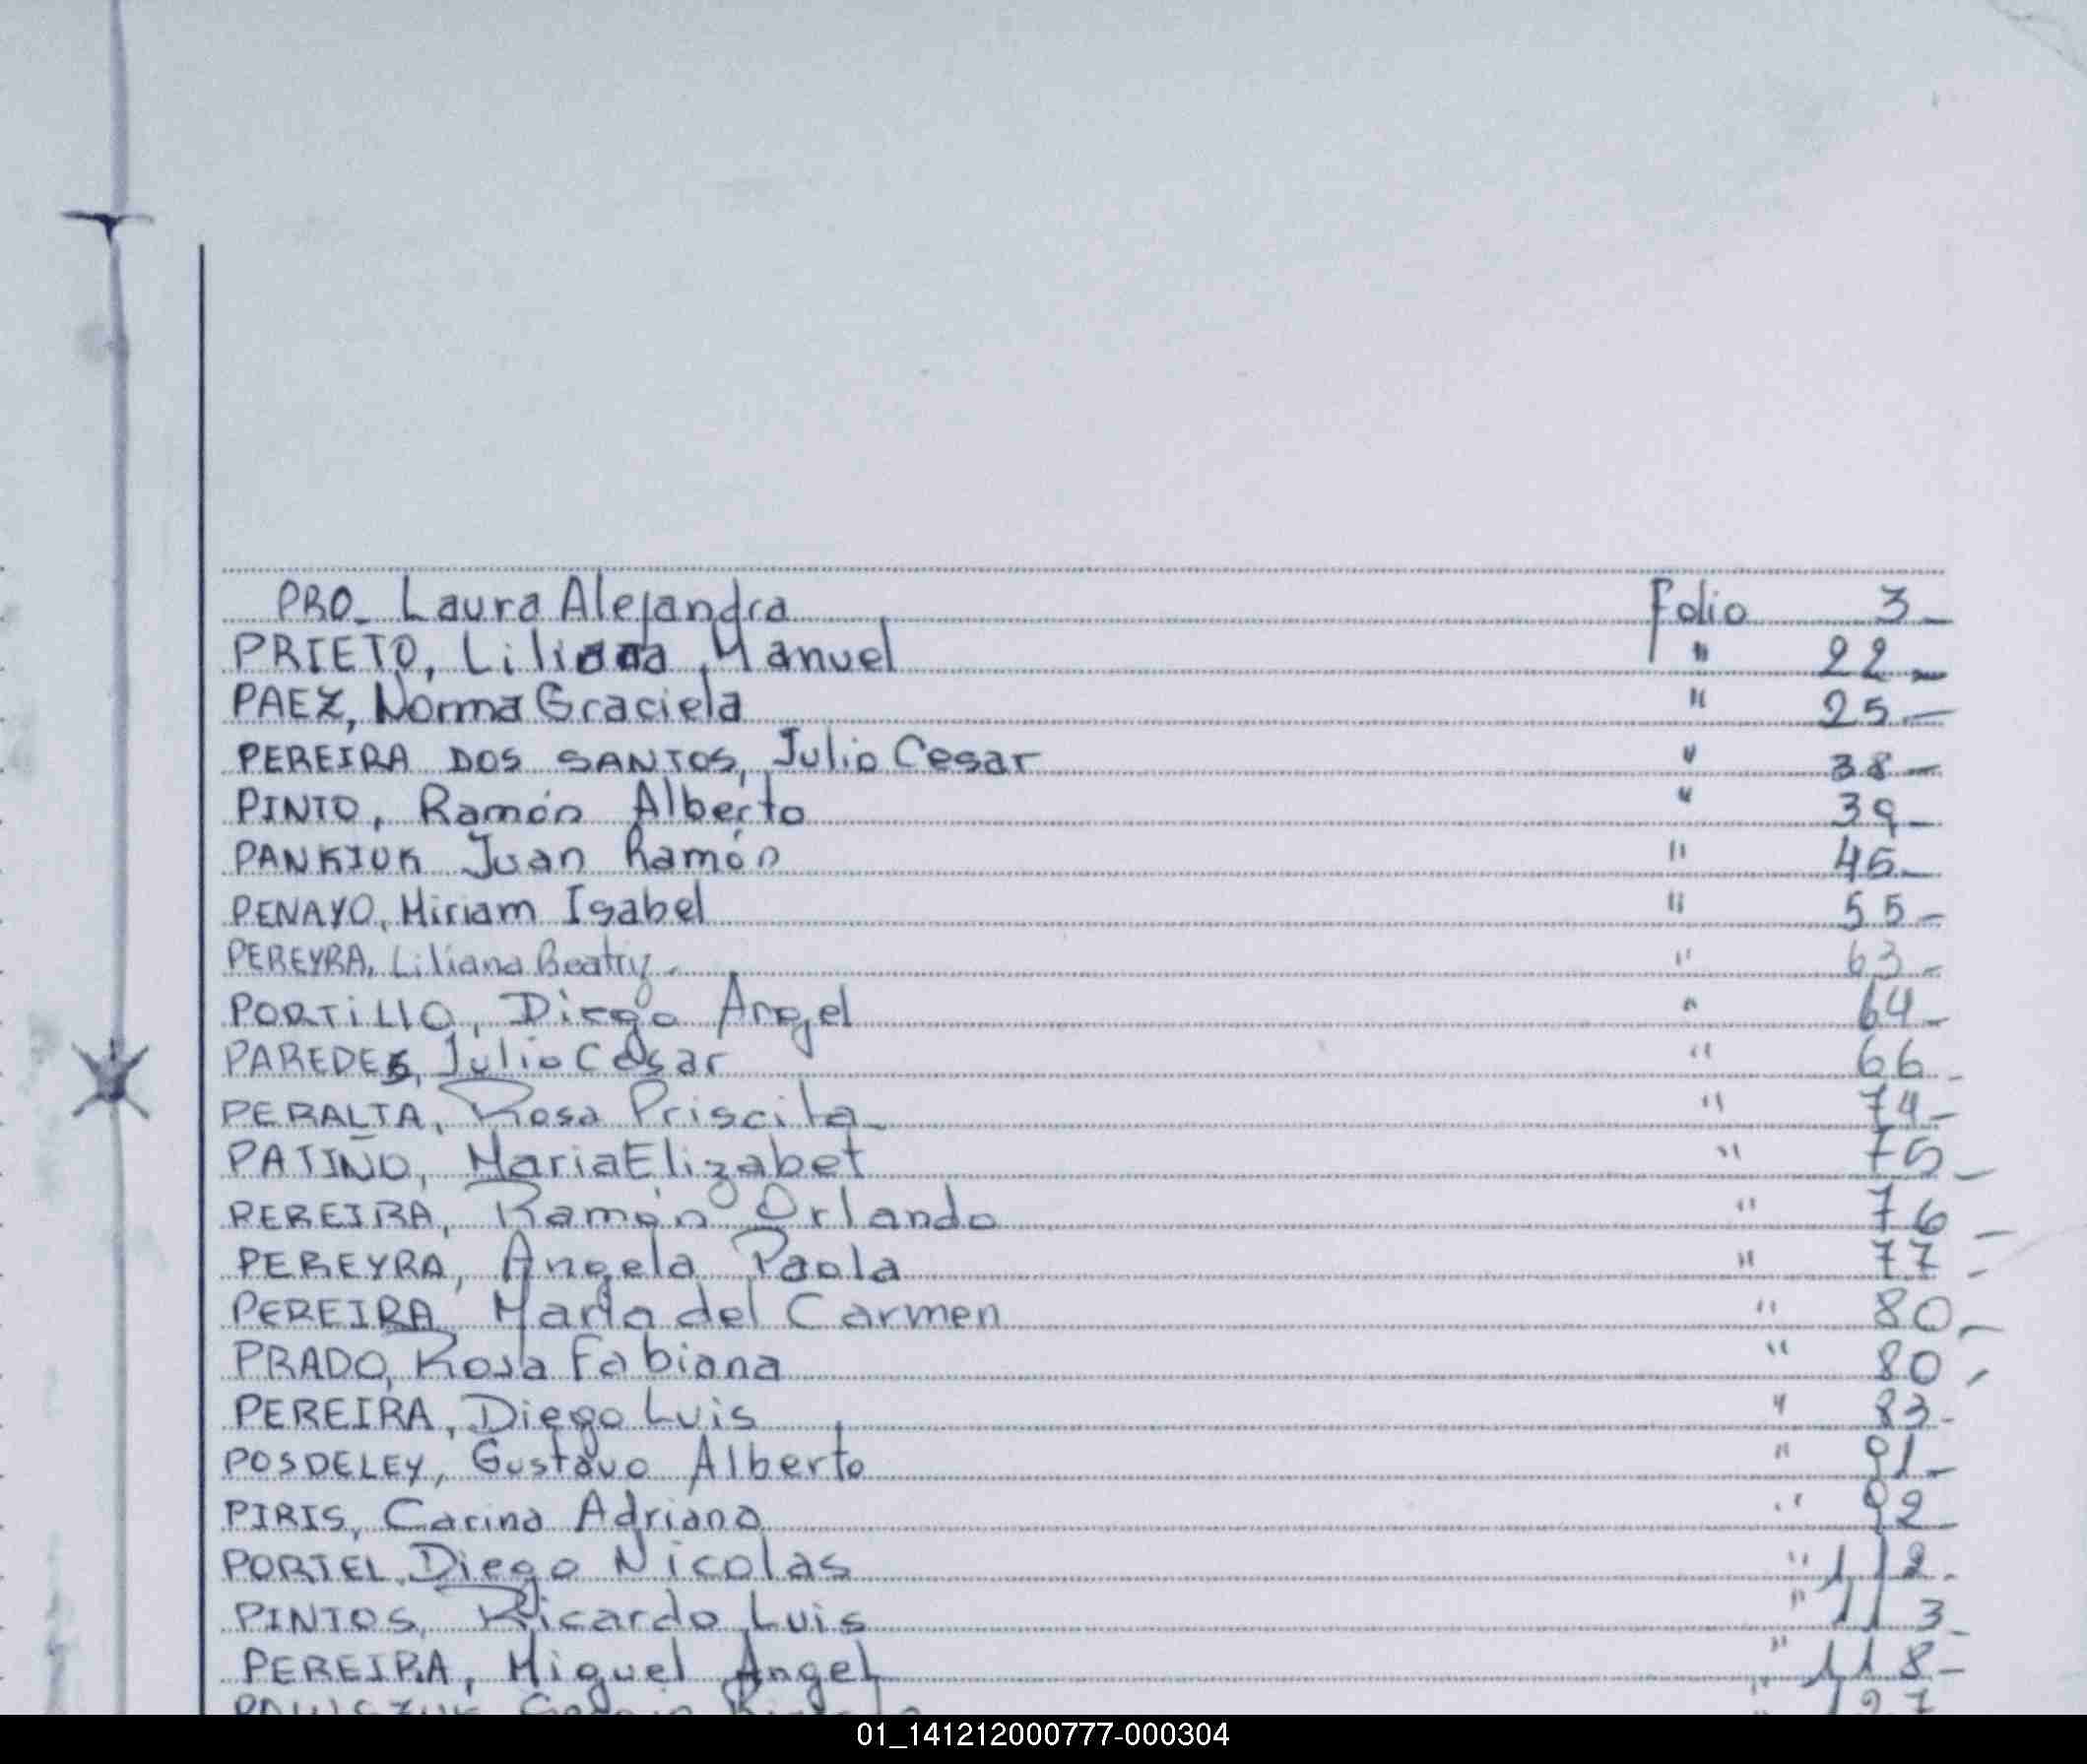 PRO_ Laura Alejandra Folio 3_
PRIETO, Manuel " 22_
PAEZ, Norma Graciela " 25_
PEREIRA DOS SANTOS, Julio Cesar " 38_
PINTO, Ramón Alberto " 39_
PANKIUK Juan Ramón " 45_
PENAYO, Miriam Isabel " 55_
PEREYRA, Liliana Beatriz " 63_
PORTILLO, Diego Angel " 64_
PAREDES, Julio César " 66_
PERALTA, Rosa Priscila_ " 74_
PATIÑO, Maria Elizabet " 75_
PEREIRA, Ramón Orlando " 76_
PEREYRA, Angela Paola " 77_
PEREIRA María del Carmen " 80_
PRADO, Rosa Fabiana " 80_
PEREIRA, Diego Luis " 83_
POSDELEY, Gustavo Alberto " 91_
PIRIS, Carina Adriana " 92_
PORTEL, Diego Nicolas " 112_
PINTOS, Ricardo Luis " 113_
PEREIRA, Miguel Angel " 118_
127
01_141212000777-000304